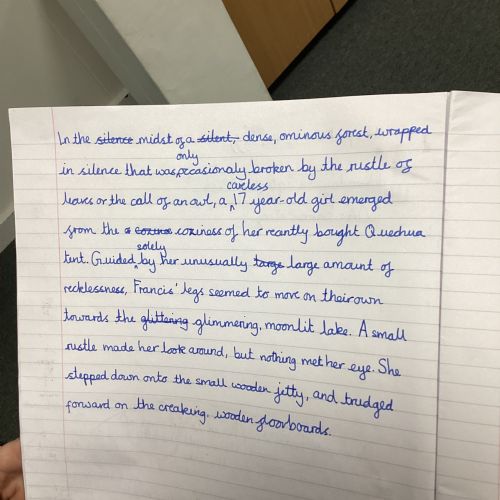 In the silence midst of a silent, dense, ominous forest, wrapped
only
in silence that was, occasionaly broken by the rustle of
careless
leaves or the call of an owl, a 17 year-old girl emerged
from the coziness of her recantly bought Quechua
solely
tent. Guided by her unusually large large amount of
recklessness, Francis' legs seemed to move on their own
towards the glittering glimmering, moonlit lake. A small
rustle made her look around, but nothing met her eye. She
stepped down onto the small wooden jetty, and trudged
forward on the creaking, wooden floorboards.